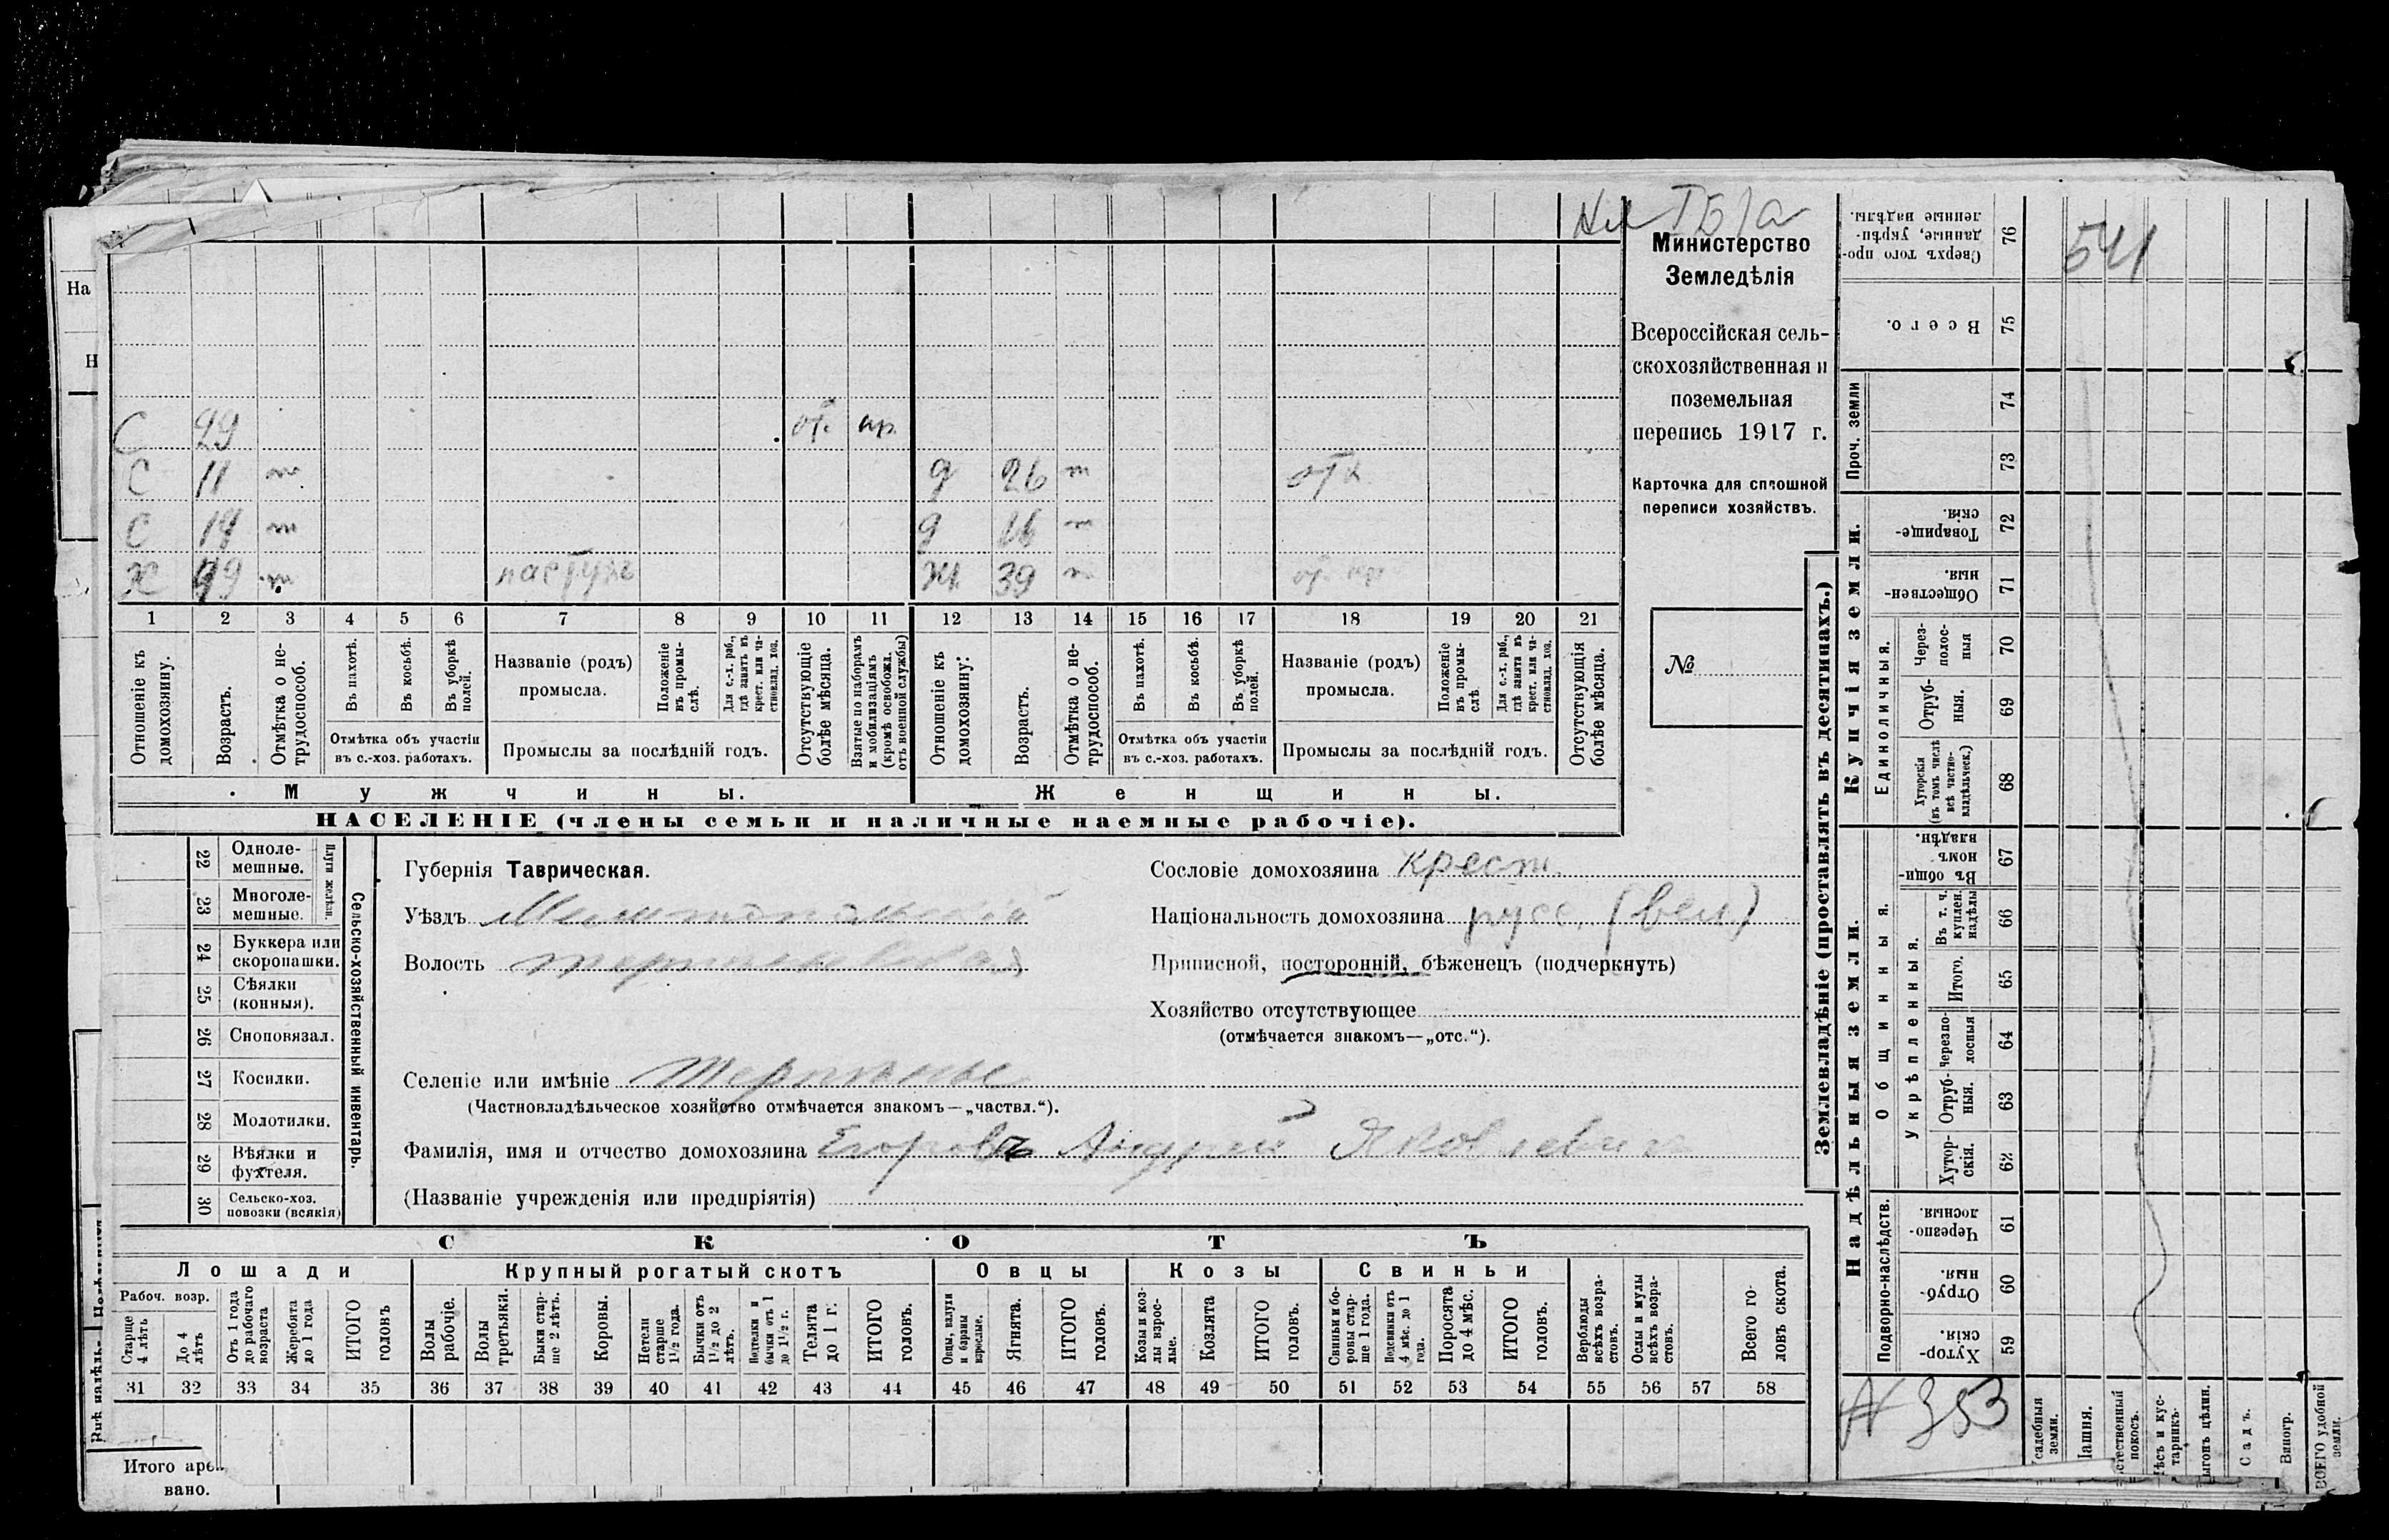 Министерство
Земледѣлія
Всероссійская сель-
скохозяйственная и
поземельная
перепись 1917 г.
Карточка для сплошной
переписи хозяйствъ.
№
На
Н
С 29 от. ар.
С 11 д 26
С 14 д
Х 49 пастухъ Ж 39
1 2 3 4 5 6 7 8 9 10 11 12 13 14 15 16 17 18 19 20 21
Отношеніе къ домохозяину.
Возрастъ.
Отмѣтка о не-трудоспособ.
Въ пахотѣ.
Въ косьбѣ.
Въ уборкѣ полей.
Отмѣтка объ участіи
въ с.-хоз. работахъ.
Названіе (родъ)
промысла.
Положеніе въ промы-слѣ.
Для с.-х. раб., гдѣ занятъ въ крест. или ча-стновлад. хоз.
Промыслы за послѣдній годъ.
Отсутствующіе болѣе мѣсяца.
Взятые по наборамъ и мобилизаціямъ (кромѣ освобожд. отъ военной службы)
Отношеніе къ домохозяину:
Возрастъ.
Отмѣтка о не-трудоспособ.
Въ пахотѣ.
Въ косьбѣ.
Въ уборкѣ полей.
Отмѣтка объ участіи
въ с.-хоз. работахъ.
Названіе (родъ)
промысла.
Положеніе въ промы-слѣ.
Для с.-х. раб., гдѣ занята въ крест. или ча-стновлад. хоз.
Промыслы за послѣдній годъ.
Отсутствующія болѣе мѣсяца.
Мужчины. Женщины.
НАСЕЛЕНІЕ (члены семьи и наличные наемные рабочіе).
Сельско-хозяйственный инвентарь.
Плуги желѣзн.
22 Одноле-мешные.
23 Многоле-мешные.
24 Буккера или скоропашки.
25 Сѣялки (конныя).
26 Сноповязал.
27 Косилки.
28 Молотилки.
29 Вѣялки и фухтеля.
30 Сельско-хоз. повозки (всякія)
Губернія Таврическая.
Уѣздъ
Волость
Селеніе или имѣніе
(Частновладѣльческое хозяйство отмѣчается знакомъ—„частвл.“).
Фамилія, имя и отчество домохозяина Егоровъ Андрей Яковлевич
(Названіе учрежденія или предпріятія)
Сословіе домохозяина крест.
Національность домохозяина русс. (вел)
Приписной, посторонній, бѣженецъ (подчеркнуть)
Хозяйство отсутствующее
(отмѣчается знакомъ—„отс.“).
СКОТЪ
Лошади Крупный рогатый скотъ Овцы Козы Свиньи
Рабоч. возр.
Старше 4 лѣтъ
До 4 лѣтъ
Отъ 1 года до рабочаго возраста
Жеребята до 1 года
ИТОГО головъ
Волы рабочіе.
Волы третьяки.
Быки стар-ше 2 лѣтъ.
Коровы.
Нетели старше 1½ года.
Бычки отъ 1½ до 2 лѣтъ.
Подтелки и бычки отъ 1 до 1½ г.
Телята до 1 г.
ИТОГО головъ.
Овцы, валухи и бараны взрослые.
Ягнята.
ИТОГО головъ.
Козы и коз-лы взрос-лые.
Козлята
ИТОГО головъ.
Свиньи и бо-ровы стар-ше 1 года.
Подсвинки отъ 4 мѣс. до 1 года.
Поросята до 4 мѣс.
ИТОГО головъ.
Верблюды всѣхъ возра-стовъ.
Ослы и мулы всѣхъ возра-стовъ.
Всего го-ловъ скота.
31 32 33 34 35 36 37 38 39 40 41 42 43 44 45 46 47 48 49 50 51 52 53 54 55 56 57 58
Итого
вано.
Землевладѣніе (проставлять въ десятинахъ.)
Надѣльныя земли. Купчія земли. Проч. земли
Подворно-наслѣдств.
Общинныя.
Укрѣпленныя.
Единоличныя.
59 Хутор-скія.
60 Отруб-ныя.
61 Черезпо-лосныя.
62 Хутор-скія.
63 Отруб-ныя.
64 Черезпо-лосныя
65 Итого.
66 Въ т. ч. куплен. надѣлы
67 Въ общин-номъ владѣн.
68 Хуторскія (въ томъ числѣ всѣ частно-владѣльческ.)
69 Отруб-ныя.
70 Через-полос-ныя
71 Обществен-ныя.
72 Товарище-скія.
73
74
75 Всего.
76 Сверхъ того про-данные, укрѣп-ленные надѣлы.
541
№ 353
садебныя земли.
Пашня.
стественный покосъ.
Лѣсъ и кус-тарникъ.
ыгонъ цѣлин.
Садъ.
Виногр.
ВСЕГО удобной земли.